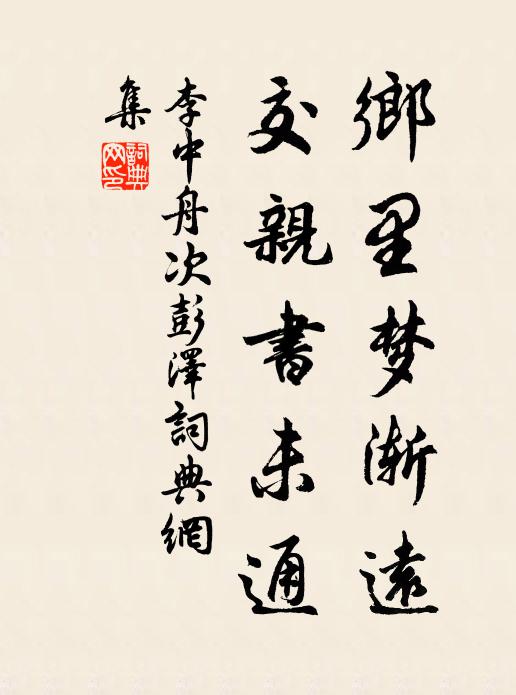 鄉里梦漸遠
交親書未通
李中舟次彭澤詞典網
集
詞典网印